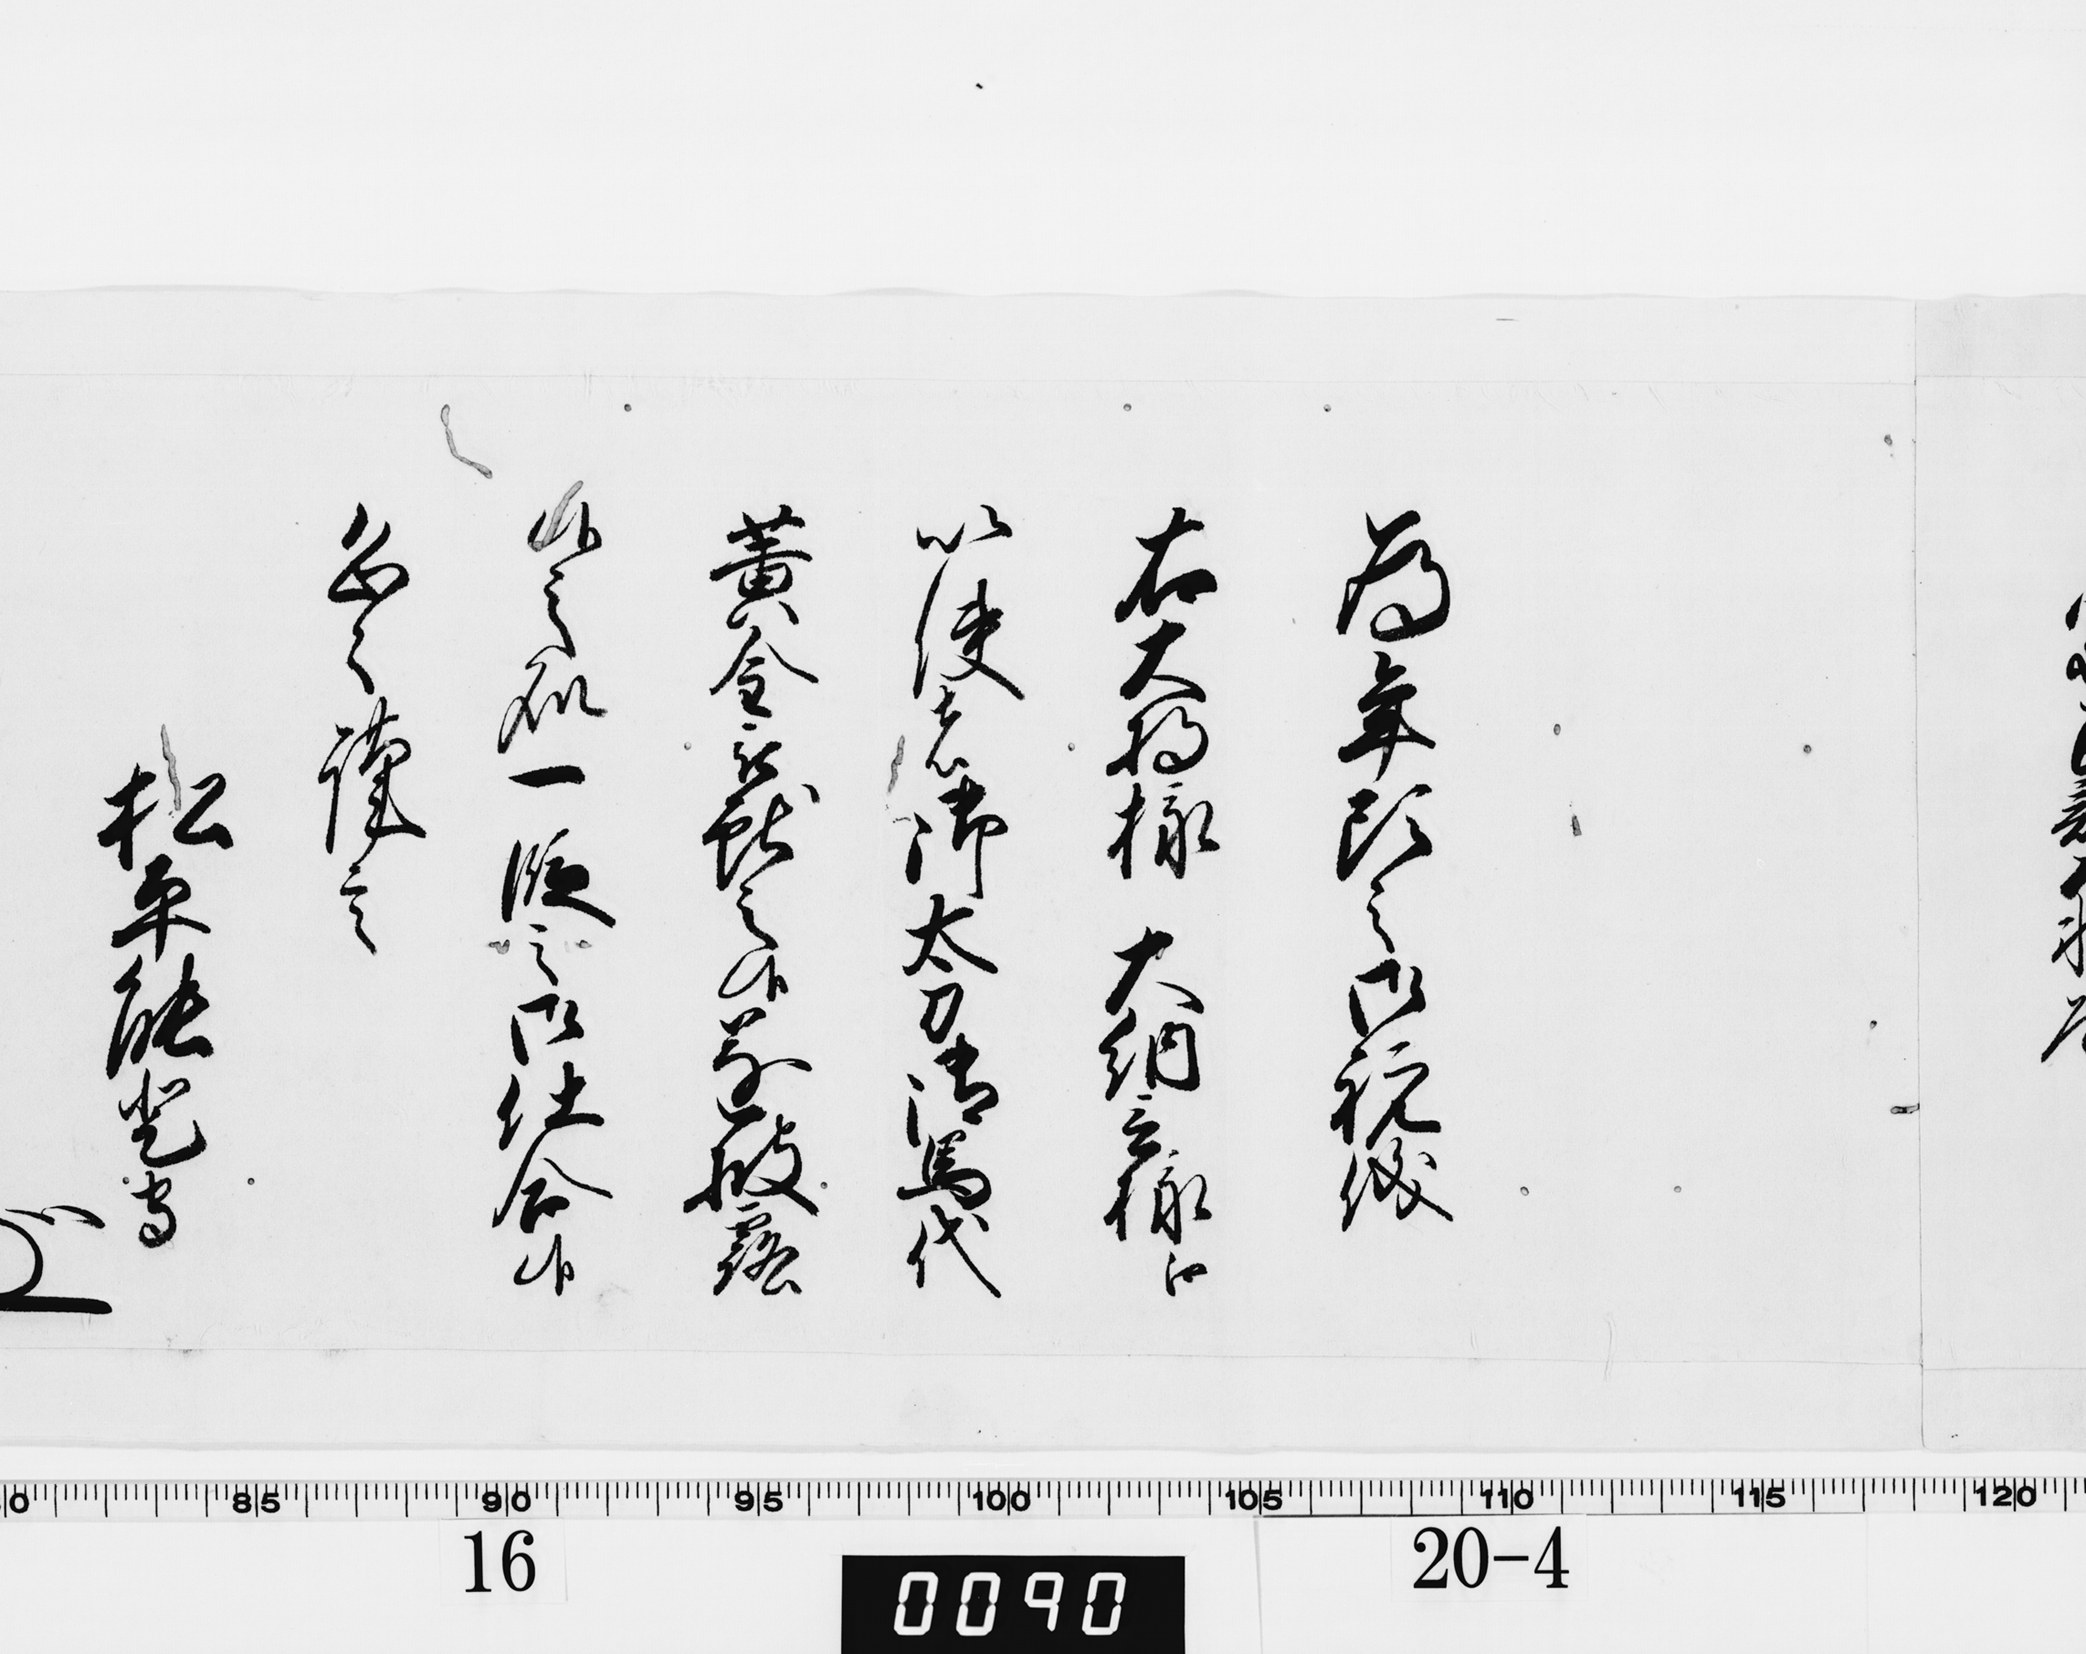 為年頭之御祝儀
右大将様 大納言様江
以使者御太刀御馬代
黄金被献之候首尾能披露
候之処一段之御仕合候
恐々謹言
松平能登守
80 85 90 95 100 105 110 115 120
16
0090
20-4